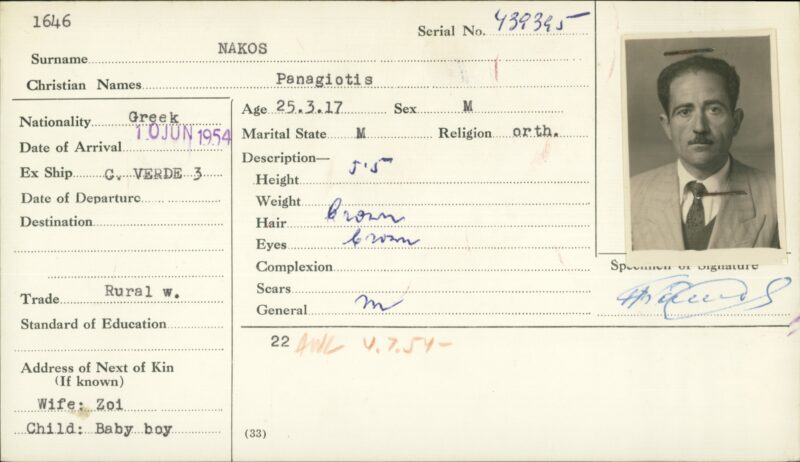 1646
Serial No. 439395
Surname NAKOS
Christian Names Panagiotis
Nationality Greek
Date of Arrival 10 JUN 1954
Ex Ship C. VERDE 3
Date of Departure
Destination
Trade Rural w.
Standard of Education
Address of Next of Kin
(If known)
Wife: Zoi
Child: Baby boy
Age 25.3.17 Sex M
Marital State M Religion orth.
Description—
Height 5.5
Weight
Hair brown
Eyes brown
Complexion
Scars
General m
Specimen of Signature
22 4.7.54-
(33)